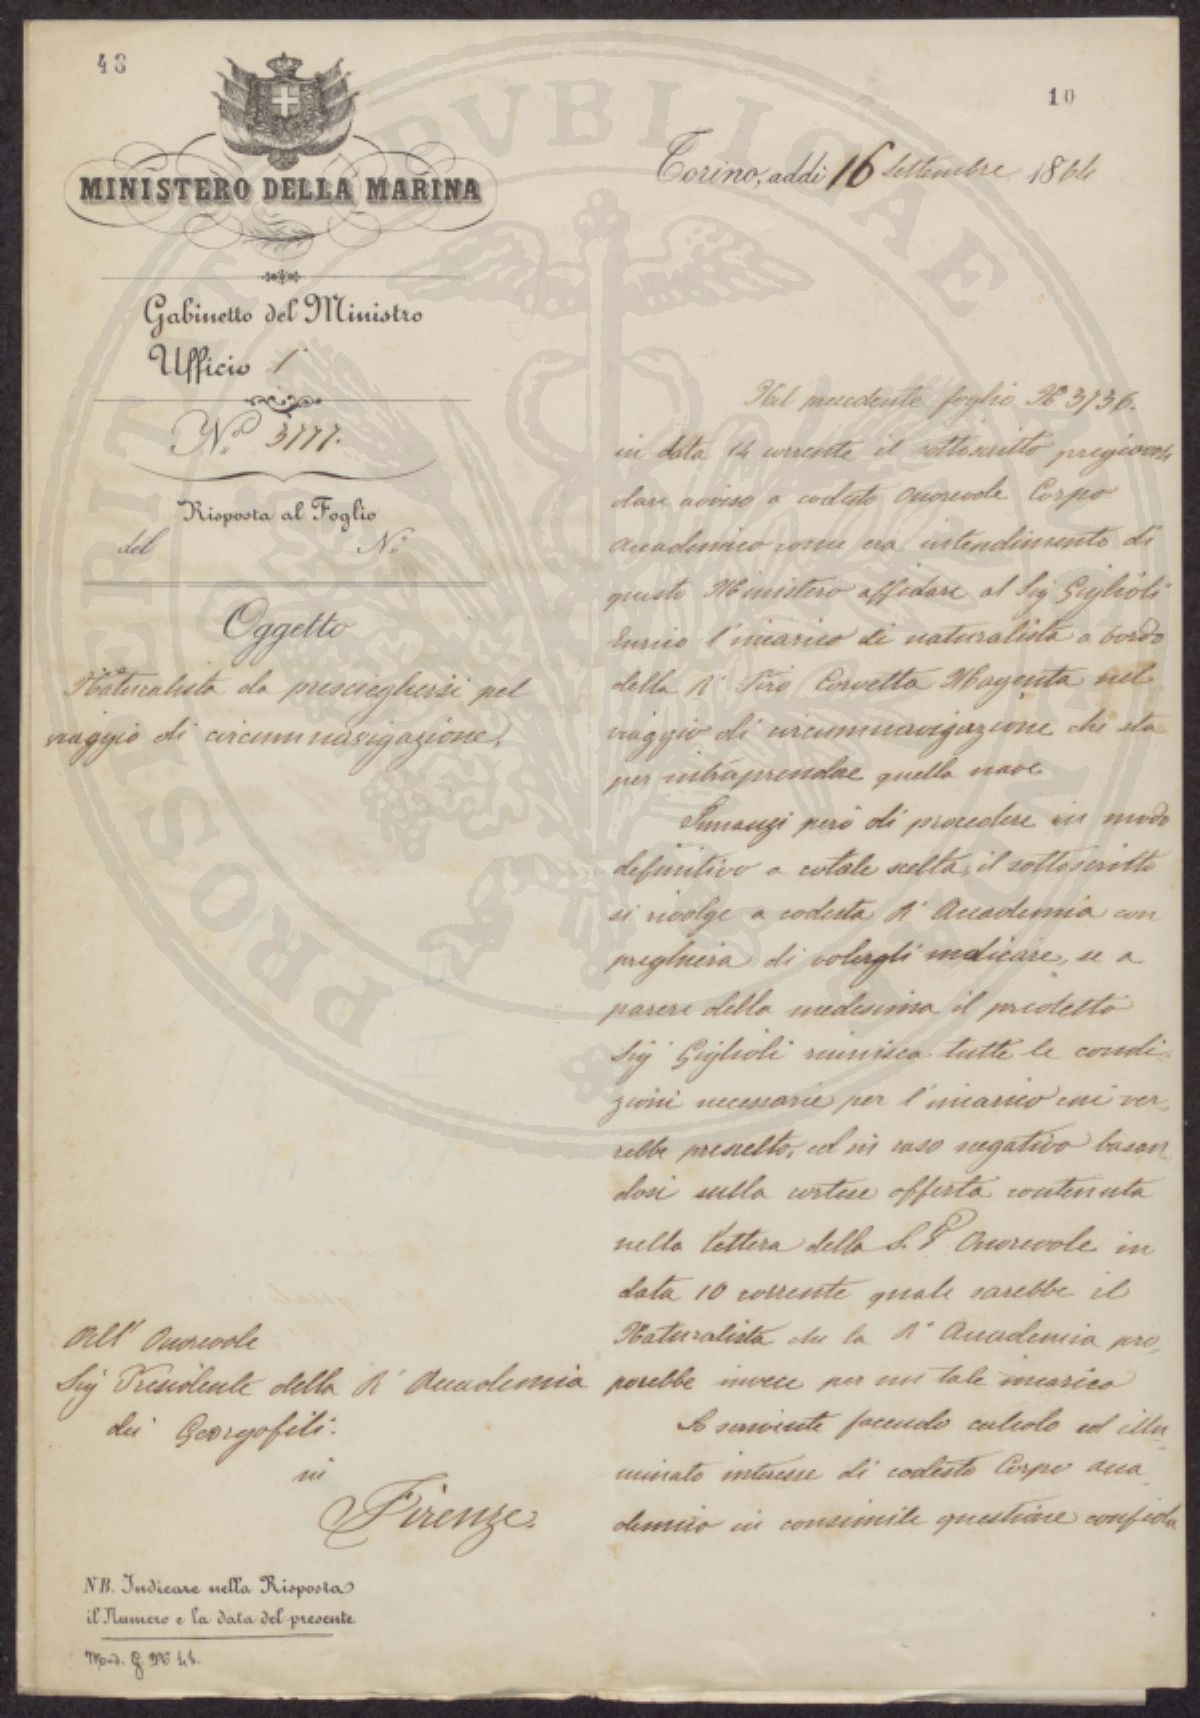 48
10
MINISTERO DELLA MARINA
Torino, addì 16 Settembre 1864
Gabinetto del Ministro
Ufficio 1°
N.° 3777.
Risposta al Foglio
del N.°
Oggetto
Naturalista da prescieghersi pel
viaggio di circumnavigazione.
Nel precedente foglio N° 3736.
in data 14 corrente il sottoscritto pregiavasi
dare avviso a codesto Onorevole Corpo
Accademico come era intendimento di
questo Ministero affidare al Sig Giglioli
Enrico l'incarico di naturalista a bordo
della R° Piro Corvetta Magenta nel
viaggio di circumnavigazione che sta
per intraprendere quella nave
Innanzi però di procedere in modo
definitivo a cotale scelta, il sottoscritto
si rivolge a codesta R° Accademia con
preghiera di volergli indicare, se a
parere della medesima il predetto
Sig° Giglioli riunisca tutte le condi-
zioni necessarie per l'incarico cui ver-
rebbe prescelto, ed in caso negativo basan
dosi sulla cortese offerta contenuta
nella lettera della S. V. Onorevole in
data 10 corrente quale sarebbe il
Naturalista che la R° Accademia pro-
porebbe invece per un tale incarico
Lo scrivente facendo calcolo ed illu-
minato interesse di codesto Corpo Acca-
demico in consimile questione confida
All' Onorevole
Sig Presidente della R° Accademia
dei Georgofili.
in
Firenze.
NB. Indicare nella Risposta
il Numero e la data del presente
Mod. G. N° 45.
PROSPERITATI PUBLICAE AUGENDAE